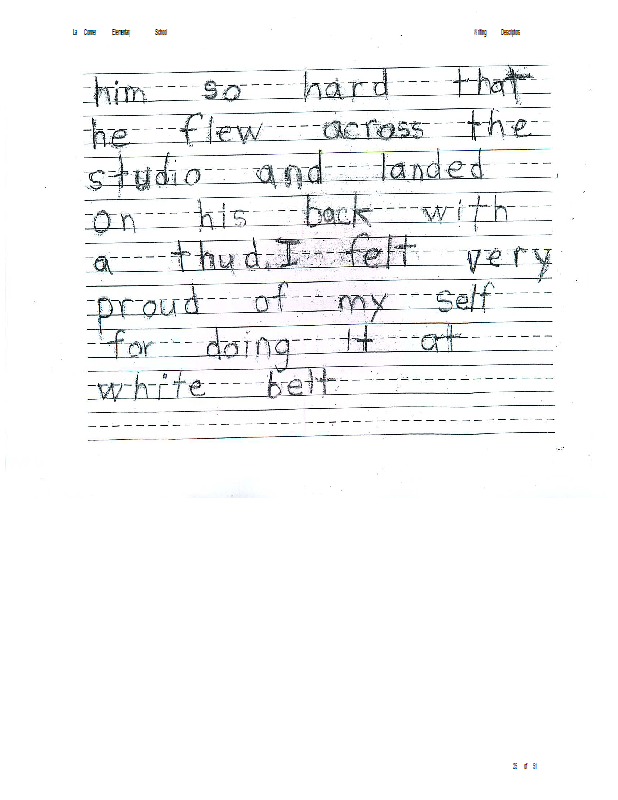 La Conner Elementary School Writing Descriptors
him so hard that
he flew across the
studio and landed
on his back with
a thud. I felt very
proud of my self
for doing it at
white belt
25 of 91